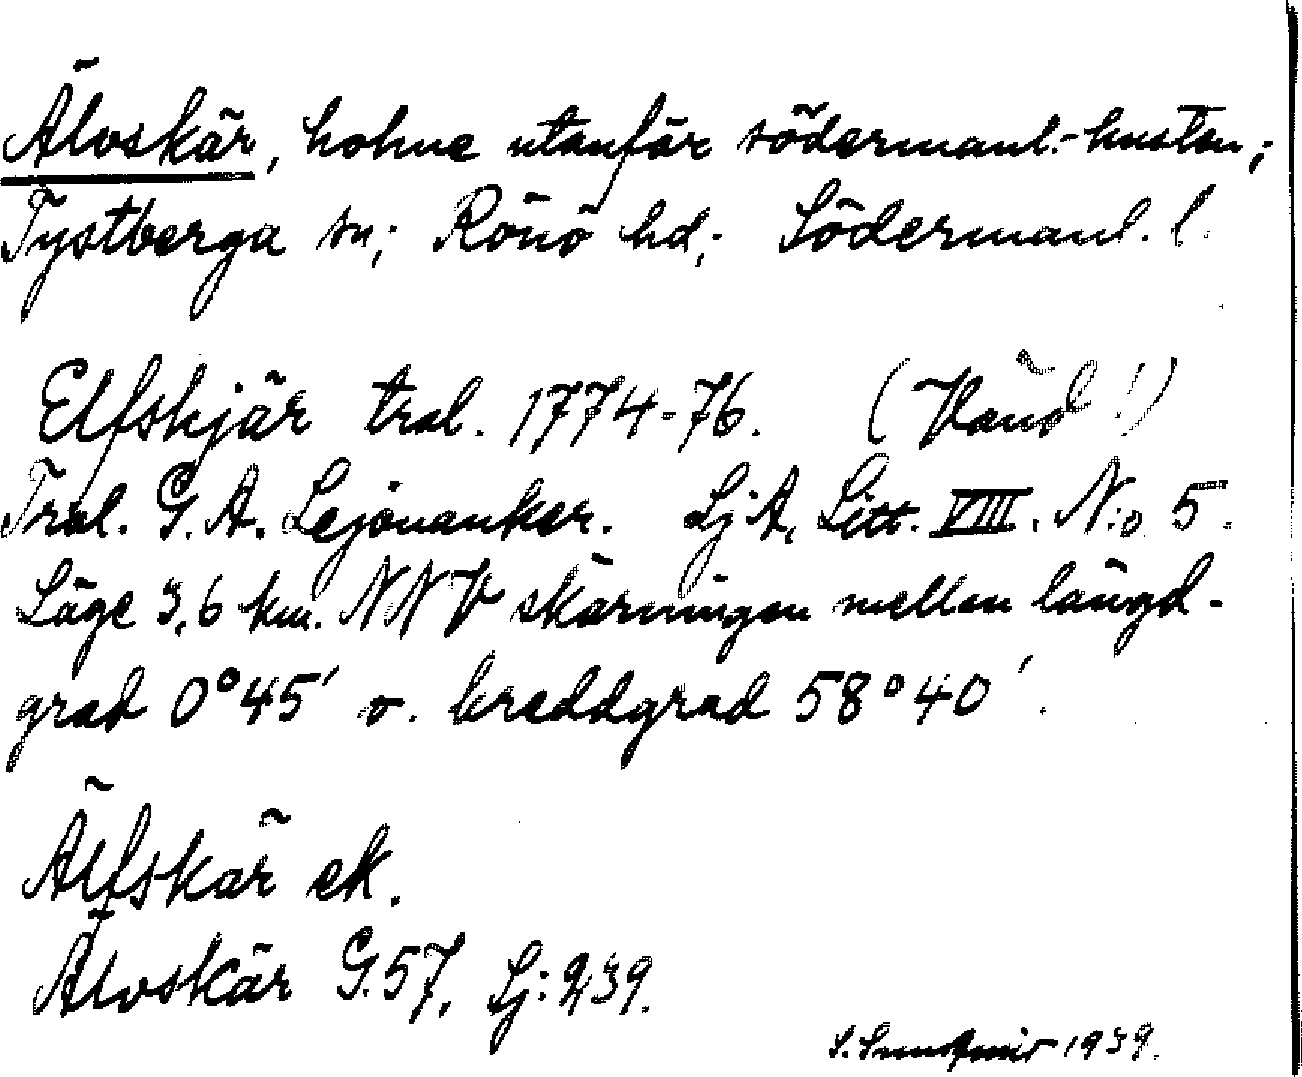 Älvskär, holme utanför södermanl.-kusten;
Tystberga sn; Rönö hd; Södermanl. l.
Elfskjär tral. 1774-76. (Vänd!)
Tral. G. A. Lejonanker. Sj A, Litt. VIII. N:o 5.
Läge 3,6 km. NNV skärningen mellan längd-
grad 0°45' o. breddgrad 58°40'.
Älfskär ek.
Älvskär G. 57, Sj: 239.
S. 1939.